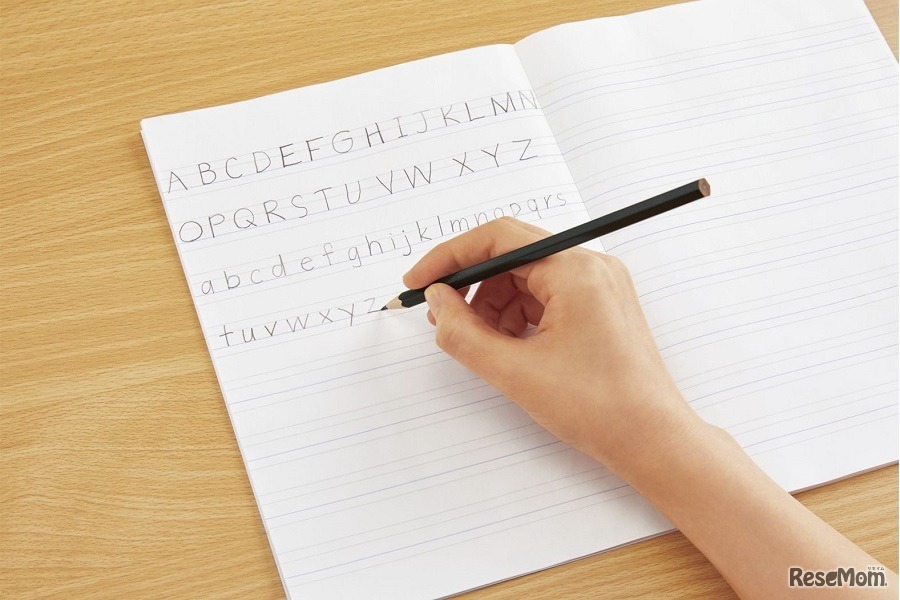 ABCDEFGHIJKLMN
OPQRSTUVWXYZ
abcdefghijklmnopqrs
tuvwxyz
リセマム
ReseMom.